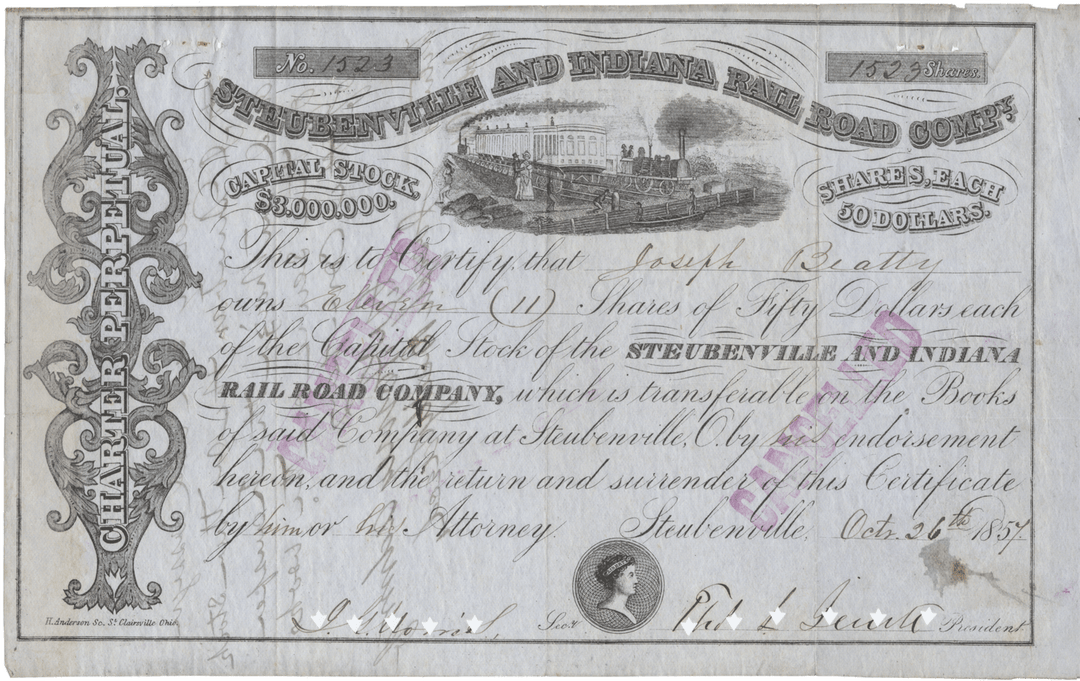 No. 1523
1523 Shares.
STEUBENVILLE AND INDIANA RAIL ROAD COMPY.
CAPITAL STOCK,
$3.000.000.
SHARES, EACH
50 DOLLARS.
CHARTER PERPETUAL.
This is to Certify, that Joseph Beatty
owns Eleven (11) Shares of Fifty Dollars each
of the Capital Stock of the STEUBENVILLE AND INDIANA
RAIL ROAD COMPANY, which is transferable on the Books
of said Company at Steubenville, O. by his endorsement
hereon, and the return and surrender of this Certificate
by him or his Attorney. Steubenville, Octr. 26th 1857.
CANCELLED
CANCELLED
H. Anderson Sc. St. Clairsville Ohio.
Secy
President